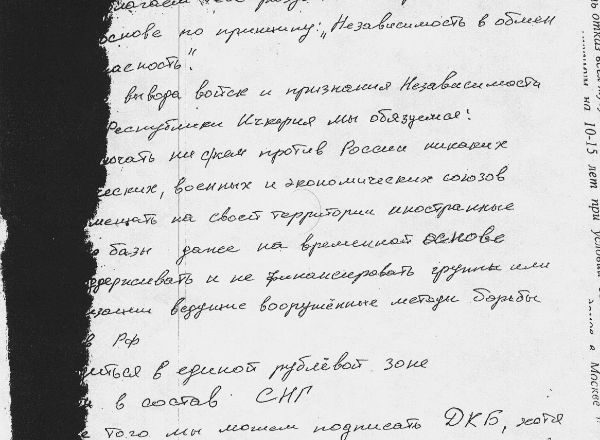 основе по принципу: „Независимость в обмен
асность".
вывода войск и признания Независимости
Республики Ичкерия мы обязуемся:
ючать ни с кем против России никаких
ческих, военных и экономических союзов
мещать на своей территории иностранные
базы даже на временной основе
ддерживать и не финансировать группы или
изации ведущие вооружённые методы борьбы
в РФ
диться в единой рублёвой зоне
в состав СНГ
е того мы можем подписать ДКБ, хотя
на 10-15 лет при
в Москве